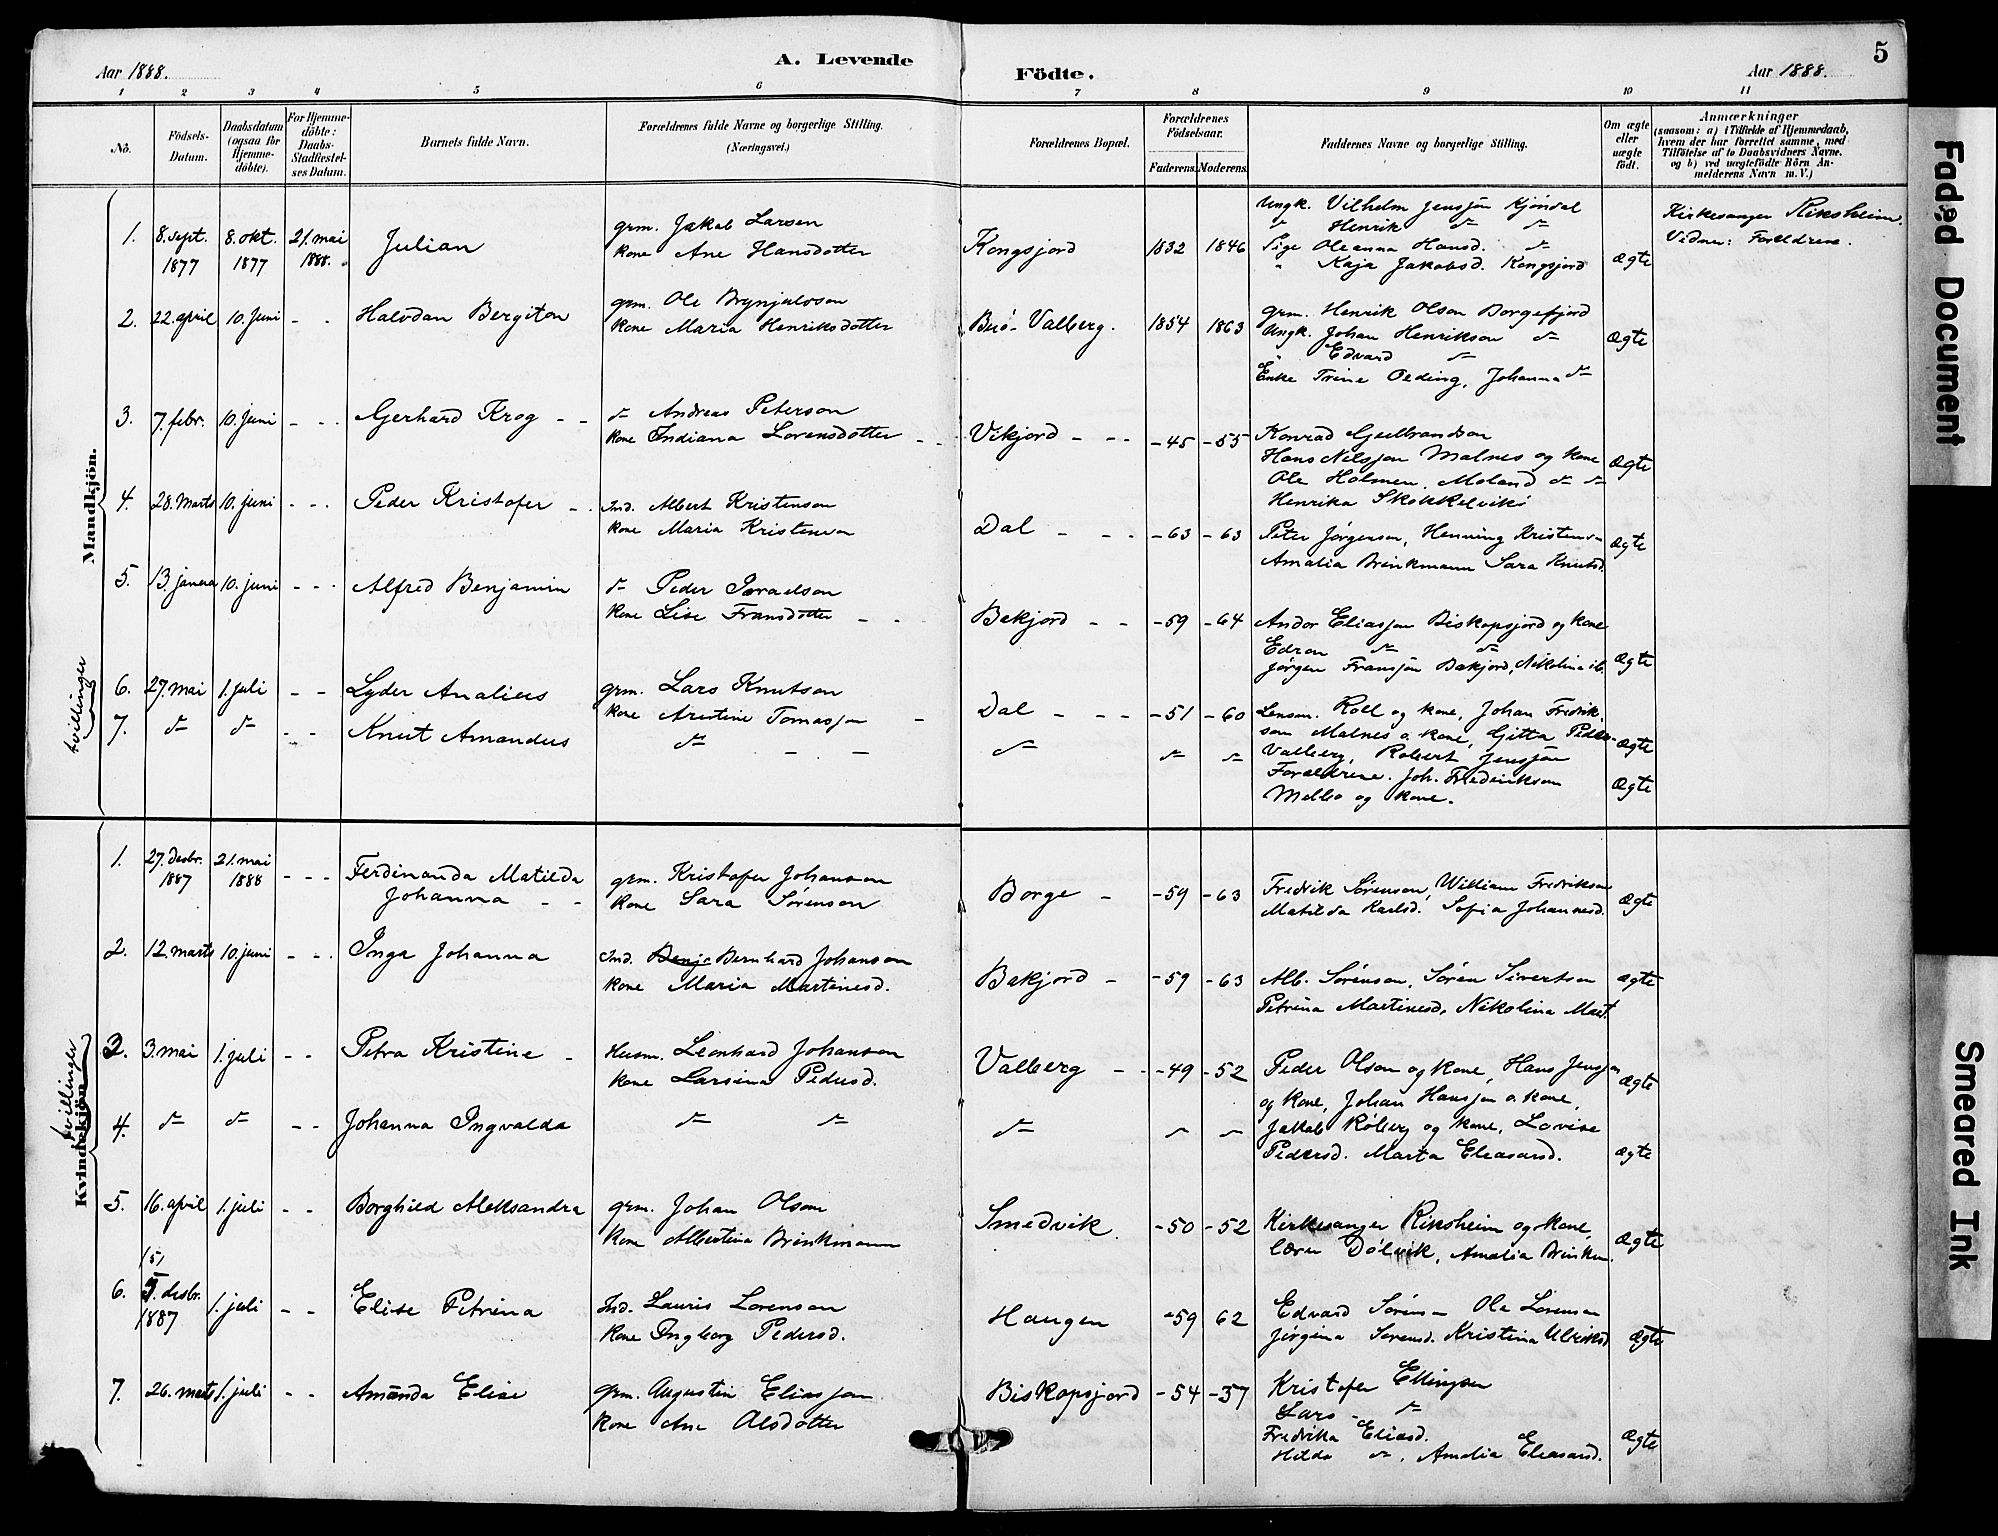 Aar 1888. A. Levende
Födte. Aar 1888. 5
1 2 3 4 5 6 7 8 9 10 11
No.
Födsels-Datum.
Daabsdatum (ogsaa for Hjemme-döbte).
For Hjemme-döbte: Daabs-Stadfæstel-ses Datum.
Barnets fulde Navn.
Forældrenes fulde Navne og borgerlige Stilling.
(Næringsvei.)
Forældrenes Bopæl.
Forældrenes Födselsaar.
Faderens. Moderens.
Faddernes Navne og borgerlige Stilling.
Om ægte eller uægte födt.
Anmærkninger
(saasom: a) i Tilfælde af Hjemmedaab,
hvem der har forrettet samme, med
Tilföielse af to Daabsvidners Navne.
og b) ved uægtefödte Börn An-
melderens Navn m. V.)
Mandkjön.
1. 8. sept. 1877 8. okt. 1877 21. mai 1888. Julian
grm. Jakob Larsen
kone Ane Hansdotter
Kongsjord 1832 1846
Ungk. Vilhelm Jensson Kjöndal
" Henrik " "
Pige Oleanna Hansd. "
" Kaja Jakobsd. Kongsjord
Ægte
Kirkesanger Riksheim.
Vidner: Forældrene.
2. 22. april 10. Juni - - Halvdan Bergiton
grm. Ole Brynjulvson
kone Maria Henriksdotter
Buö-Valberg. 1854 1863
grm. Henrik Olson Borgefjord
Ungk. Johan Henrikson "
" Edvard "
Enke Trine Olding, Johanna "
Ægte
3. 7. febr. 10. Juni - - Gjerhard Krog - -
" Andreas Peterson
kone Indiana Lorensdotter - -
Vikjord - - - -45 -55
Konrad Gulbrandson
Hans Nilsson Malnes og kone
Ole Holmen, Moland " "
Henrika Skokkelvik
Ægte
4. 28. Marts 10. juni - - Peder Kristofer - -
Ind. Albert Kristenson
kone Maria Kristenson
Dal - - - -63 -63
Peter Jørgenson, Henning Kristens-
Amalia Brinkmann Sara Knutsd.
Ægte
5. 13. janua 10. juni - - - Alfred Benjamin
" Peder Israelson
kone Lise Fransdotter - -
Bekjord - - -59 -64
Andor Eliasson Biskopsjord og kone
Edron " "
Jörgen Fransson Bakjord, Nikolina ib.
Ægte
tvillinger
6. 27. mai 1. juli - - Lyder Analius
grm. Lars Knutson
kone Arestine Tomasson -
Dal - - - -51 -60
Lensm. Roll og kone, Johan Fredrik-
son Malnes o. kone, Gitta Peders-
Ægte
7. " " - - Knut Amandus
" - -
" " "
Valberg, Robert Jensson
Forældrene. Joh. Fredriksom
Melbo og kone.
Ægte
Kvindekjön.
1. 27. desbr. 1887 21. mai 1888 - - - Ferdinanda Matilda
Johanna - -
grm. Kristofer Johanson
kone Sara Sörenson
Borge - -59 -63
Fredrik Sörenson, William Fredrikson
Matilda Karlsd. Sofia Johannesd.
Ægte
2. 12. marts 10. juni - - Inga Johanna
Ind. Benj. Bernhard Johanson
kone Maria Martinesd.
Bakjord - -59 -63
Alb. Sörenson, Sören Sivertson
Petrina Martinesd, Nikolina Mart.
Ægte
tvillinger
3. 3. mai 1. juli - - Petra Kristine -
Husm. Leonhard Johanson
kone Larsina Pedersd.
Valberg - - -49 -52
Peder Olson og kone, Hans Jensson
og kone, Johan Hansson o. kone,
Ægte
4. " " - - Johanna Ingvalda
" "
" " "
Jakob Röberg og kone, Lovise
Pedersd. Marta Eleasarsd.
Ægte
5. 16. april 1. juli - - Borghild Aleksandra
grm. Johan Olson
kone Albertina Brinkmann
Smedvik. -50 -52
Kirkesanger Riksheim og kone,
lærer Dölvik, Amalia Brinkm.
Ægte
6. 15/5. desbr. 1887 1. juli - - Elise Petrina
Ind. Lauris Lorenson
kone Ingborg Pedersd.
Haugen -59 62
Edvard Sörens- Ole Lorenson
Jörgina Sörensd. Kristina Ulriksd
Ægte
7. 26. marts 1. juli - - Amanda Elise
grm. Augustin Eliasson
kone Ane Olsdotter
Biskopsjord -54 -57
Kristofer Ellingsen
Lars - "
Fredrika Eliasd.
Hilda ", Amalia Eleasarsd.
Ægte
Faded Document
Smeared Ink